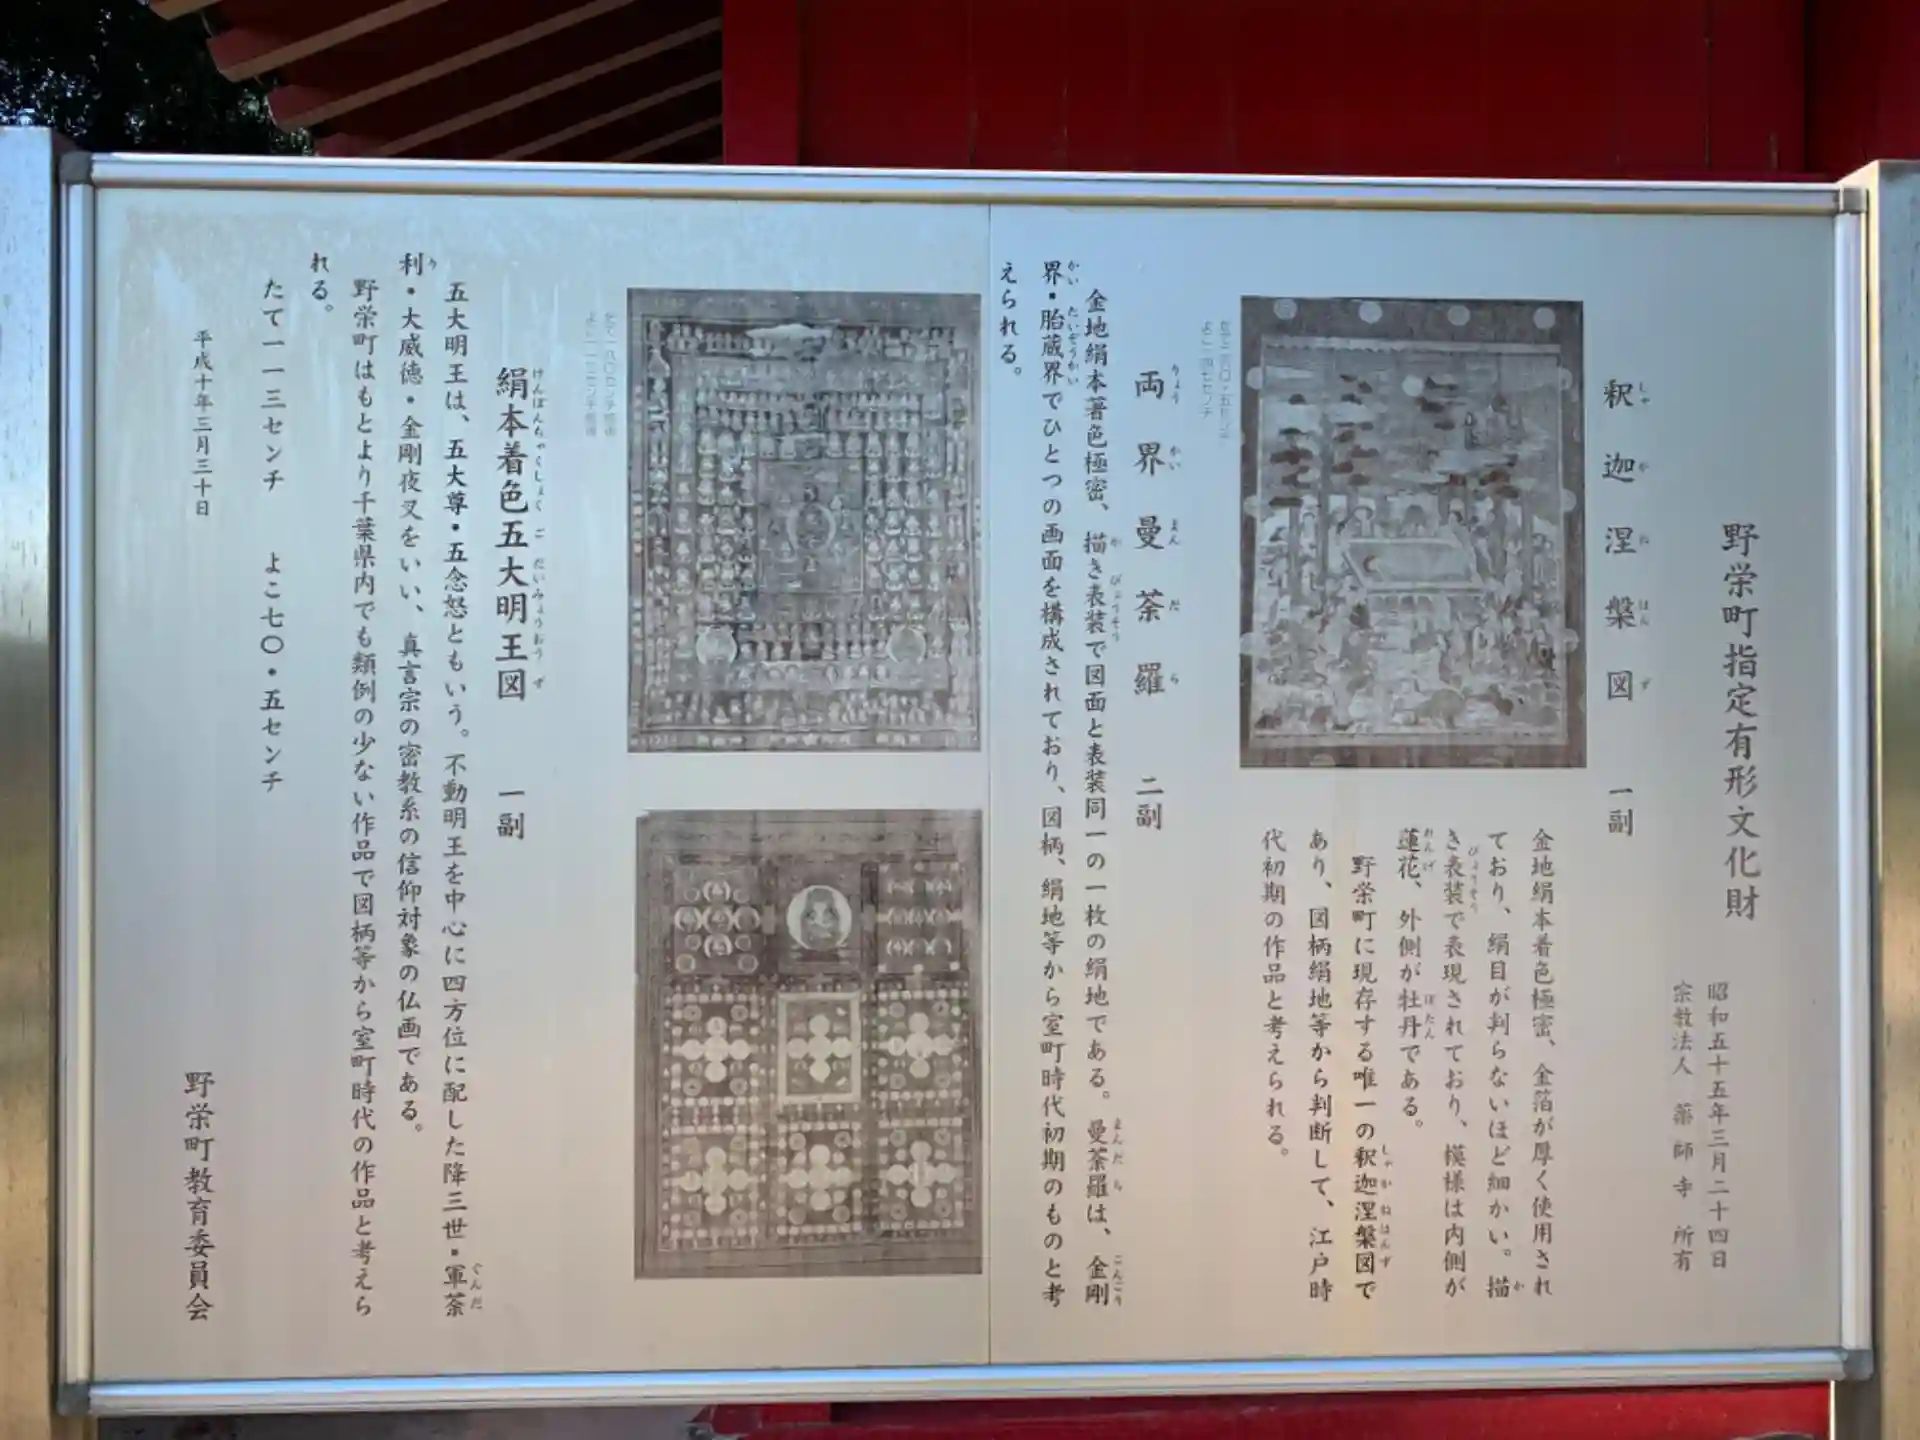 野栄町指定有形文化財
昭和五十五年三月二十四日
宗教法人 薬師寺 所有
釈迦涅槃図 一副
しゃ か ね はん ず
金地絹本着色極密、金箔が厚く使用され
ており、絹目が判らないほど細かい。描
か
き表装で表現されており、模様は内側が
びょうそう
蓮花、外側が牡丹である。
れんげ ぼたん
野栄町に現存する唯一の釈迦涅槃図で
しゃか ねはんず
あり、図柄絹地等から判断して、江戸時
代初期の作品と考えられる。
両界曼荼羅 二副
りょう かい まん だ ら
金地絹本著色極密、描き表装で図面と表装同一の一枚の絹地である。曼荼羅は、金剛
か びょうそう まんだら こんごう
界・胎蔵界でひとつの画面を構成されており、図柄、絹地等から室町時代初期のものと考
かい たいぞうかい
えられる。
絹本着色五大明王図 一副
けんぽんちゃくしょく ご だいみょうおう ず
五大明王は、五大尊・五念怒ともいう。不動明王を中心に四方位に配した降三世・軍荼
ぐんだ
利・大威徳・金剛夜叉をいい、真言宗の密教系の信仰対象の仏画である。
り
野栄町はもとより千葉県内でも類例の少ない作品で図柄等から室町時代の作品と考えら
れる。
たて一一三センチ よこ七〇・五センチ
平成十年三月三十日
野栄町教育委員会